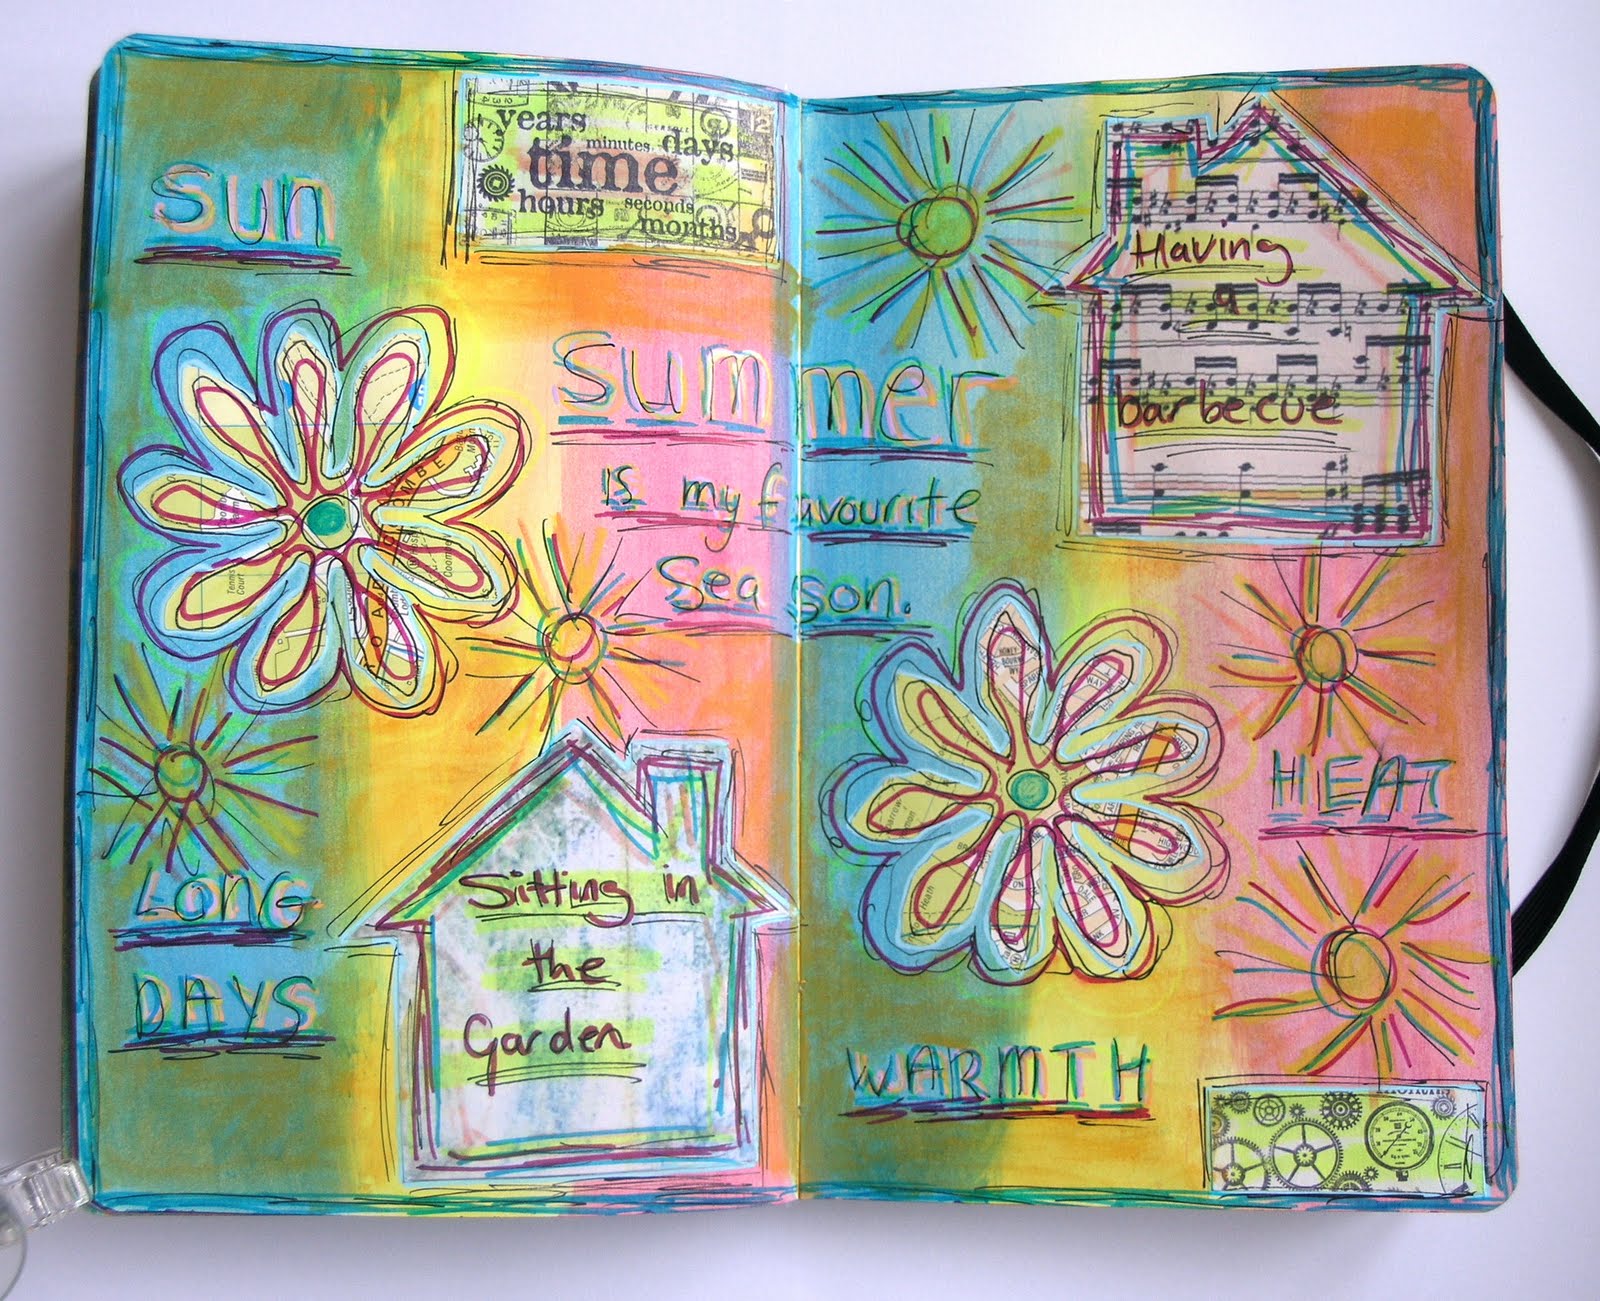 Sun
years
minutes days
time
hours seconds
months
Summer
is my favourite
Season.
Having
a
barbecue
HEAT
LONG
DAYS
Sitting in
the
Garden
WARMTH
Tennis
Court
HONEY
BOURN
Heath